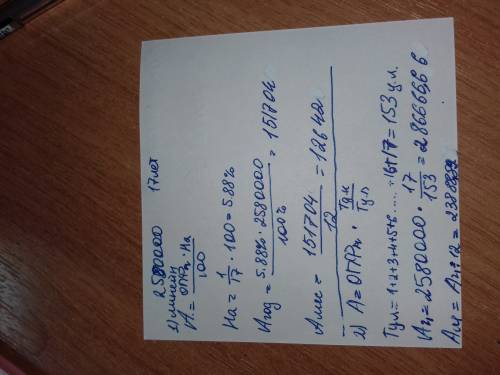 2580000 17 лет
1) линейн
A = ОПФп · На / 100
На = 1/17 · 100 = 5.88%
Aгод = 5.88% · 2580000 / 100% = 151704
Aмес = 151704 / 12 = 12642
2) A = ОПФп · Tч.л / Tч.л
Tч.л = 1+2+3+4+5+6.....+16+17 = 153 ч.л.
Aч = 2580000 · 17/153 = 286666,66
Aм = Aч : 12 =